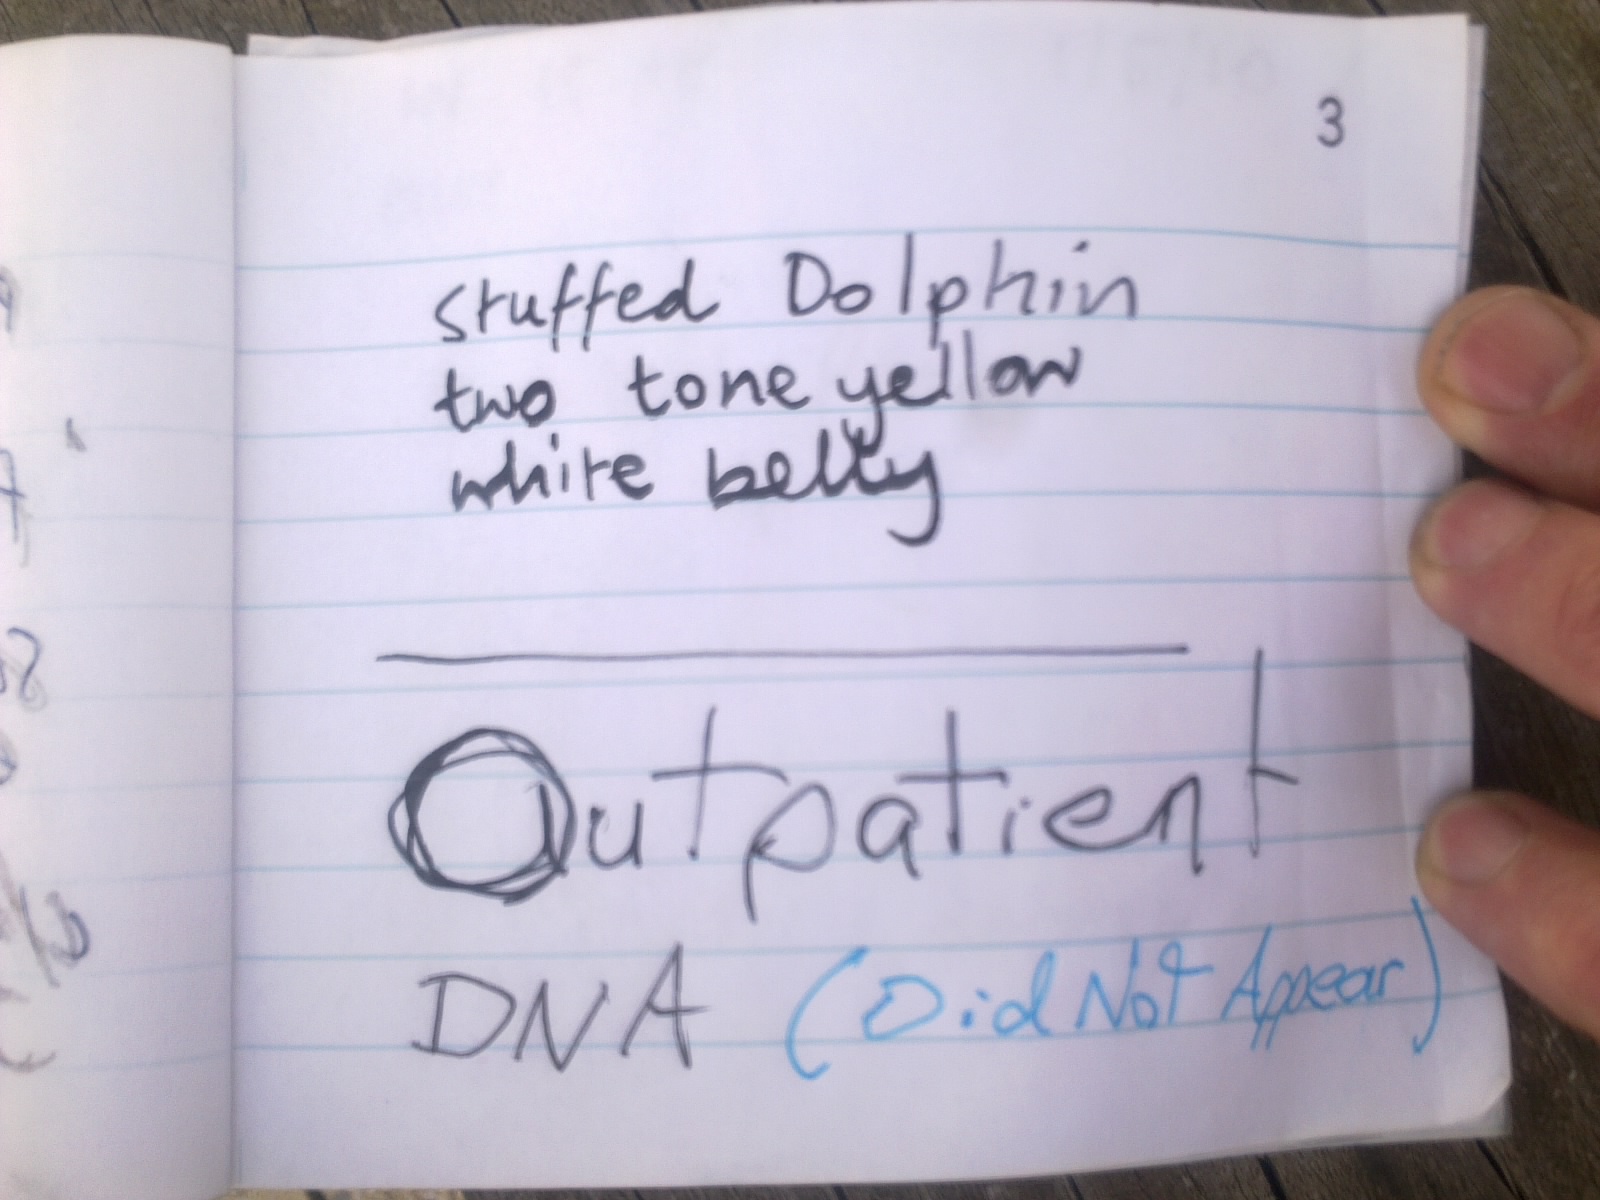 3
stuffed Dolphin
two tone yellow
white belly
Outpatient
DNA (Did Not Appear)